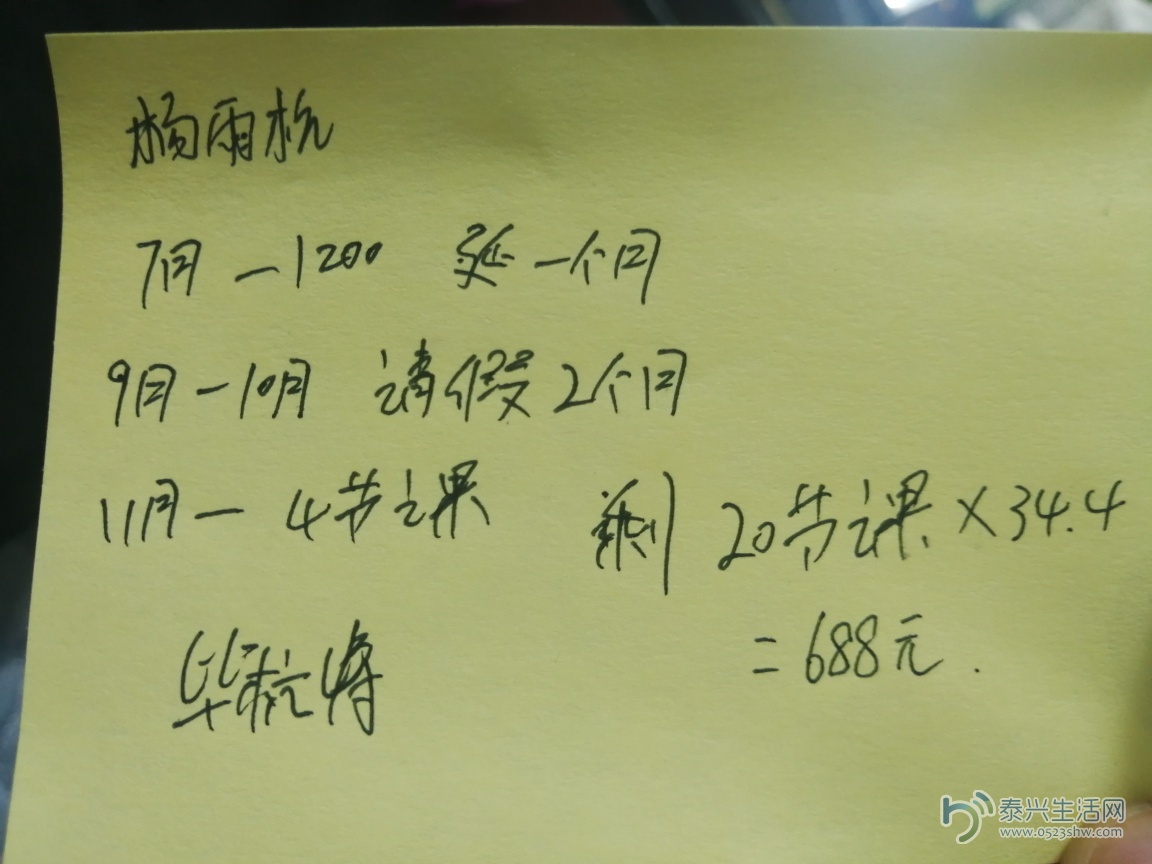 杨雨杭
7月 — 1200 延一个月
9月 — 10月 请假2个月
11月 — 4节课 剩 20节课 × 34.4
= 688元.
毕杭
泰兴生活网
www.0523shw.com